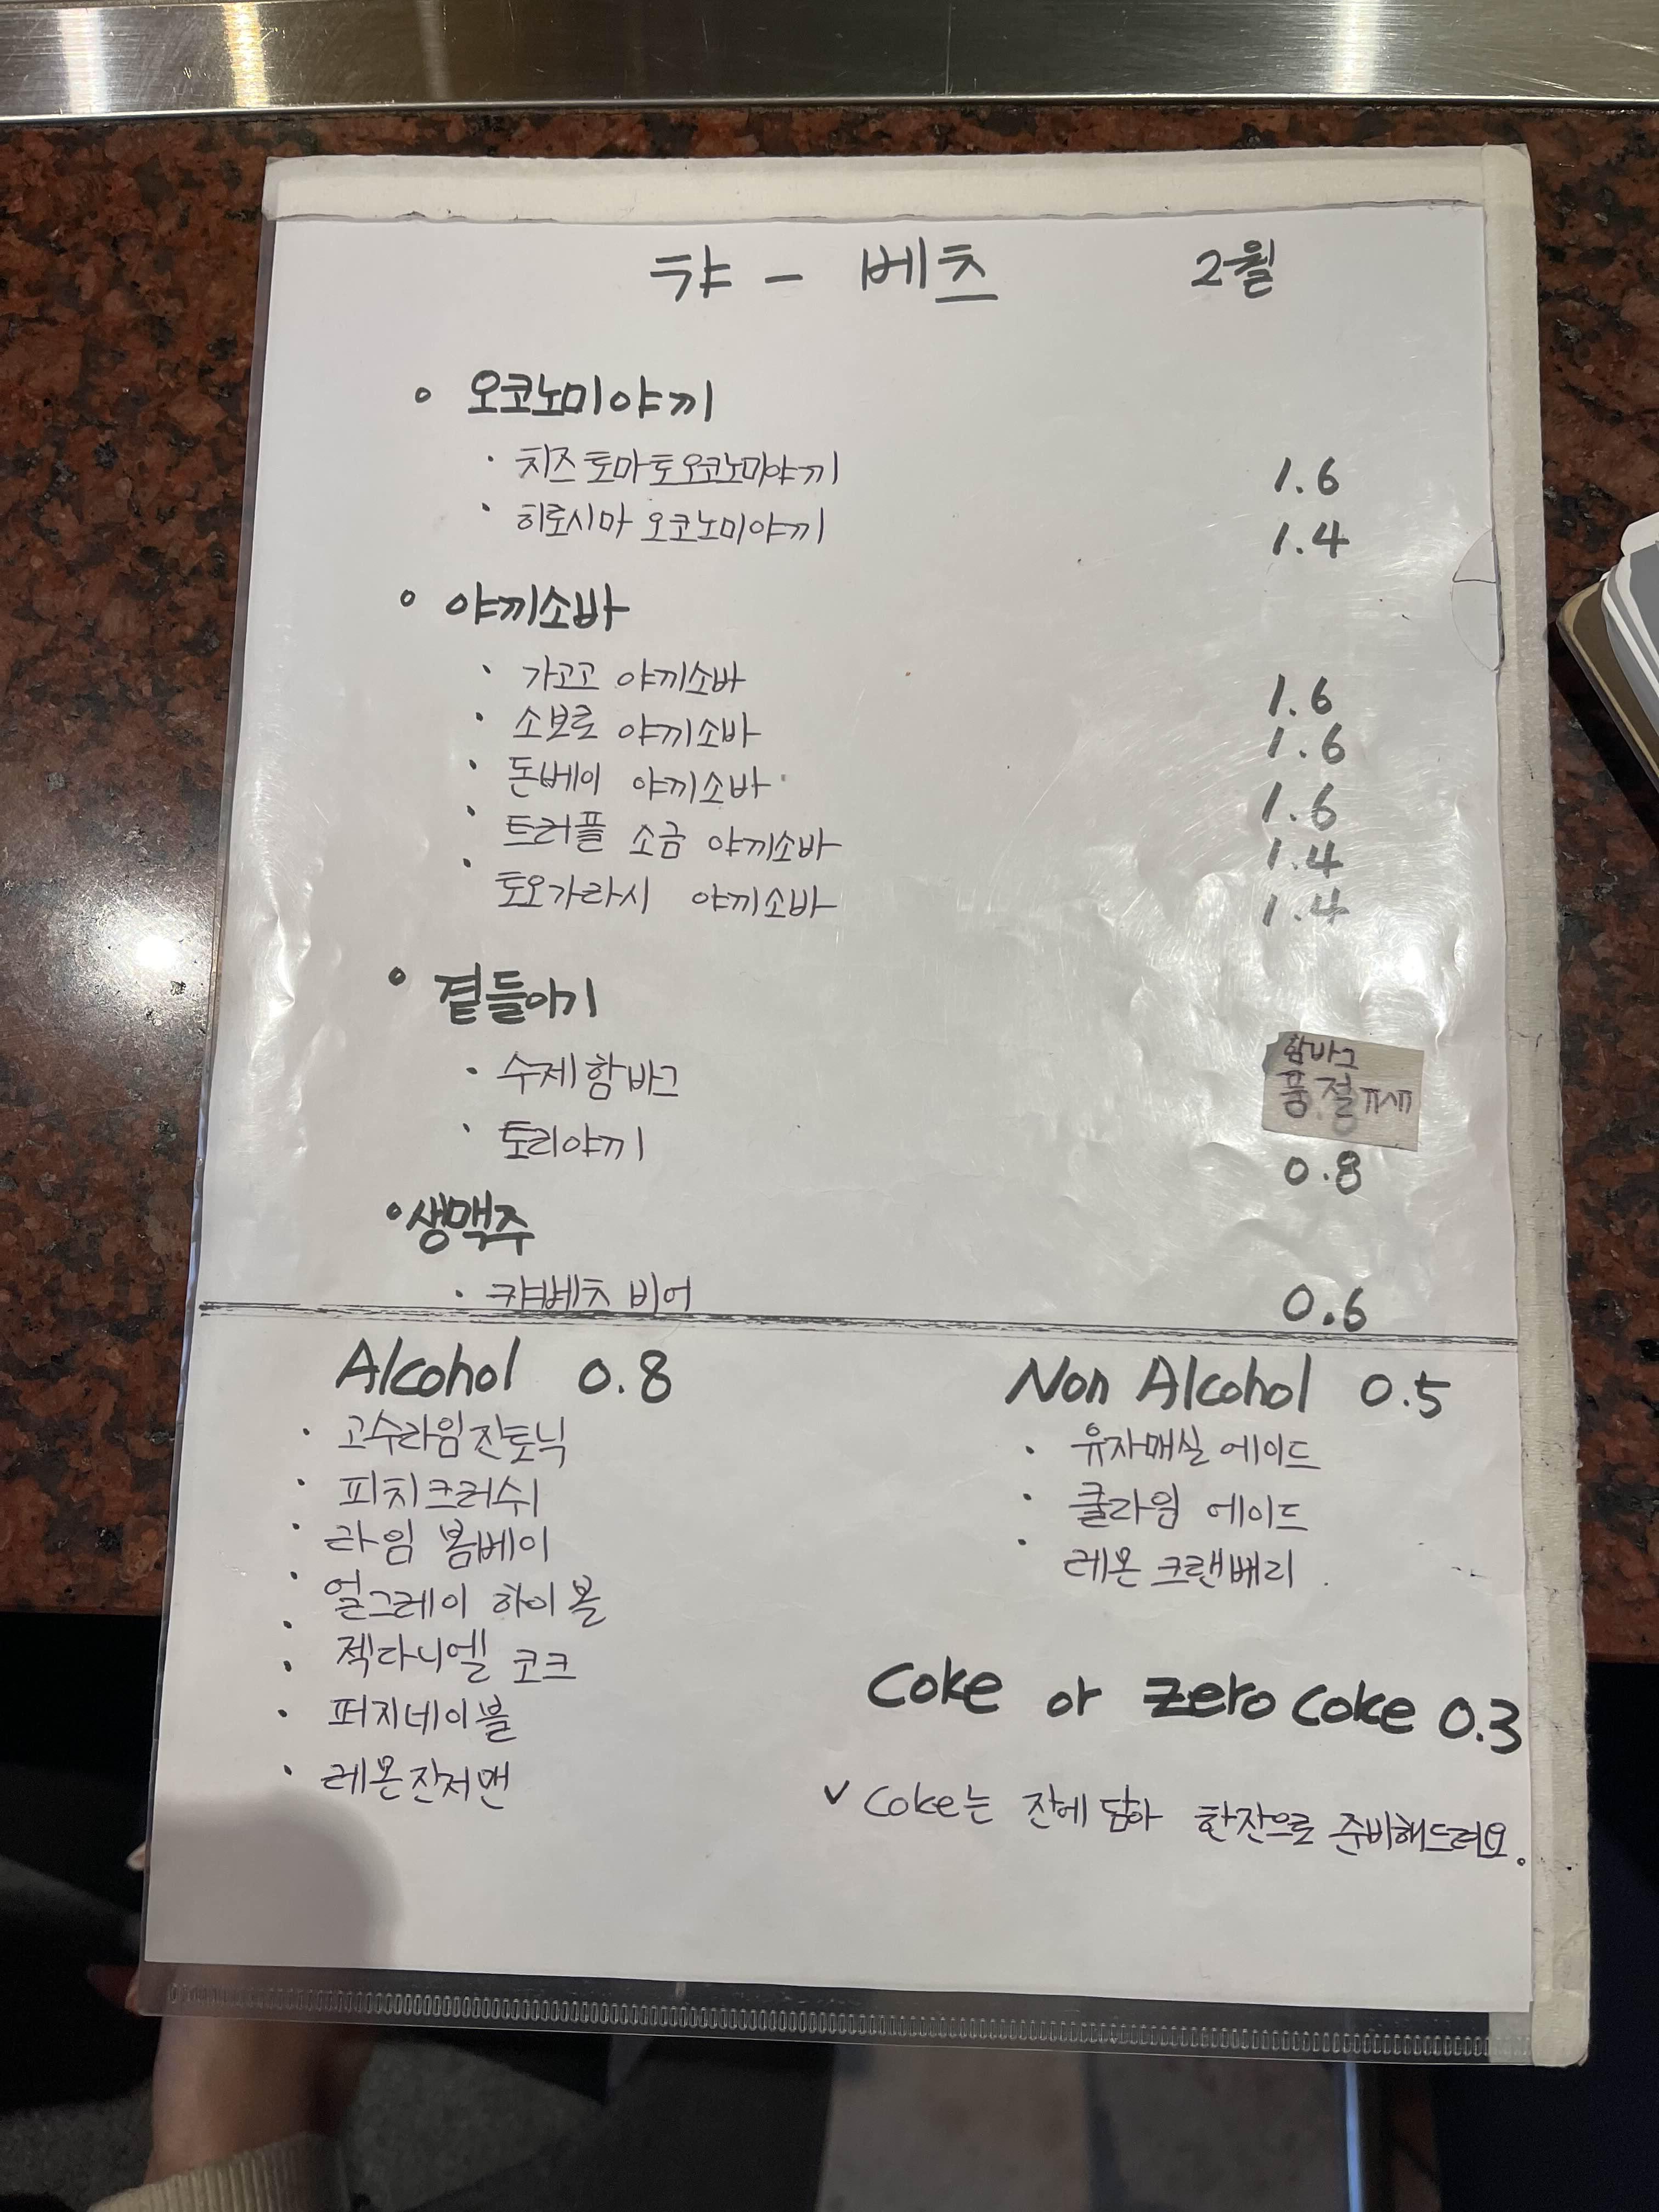 캬 - 베츠 2월
오코노미야끼
치즈토마토오코노미야끼 1.6
히로시마 오코노미야끼 1.4
야끼소바
가고꼬 야끼소바 1.6
소보로 야끼소바 1.6
돈베이 야끼소바 1.6
트러플 소금 야끼소바 1.4
토오가라시 야끼소바 1.4
곁들이기
수제함바그
함바그
품절
토리야끼 0.8
생맥주
캬베츠 비어 0.6
Alcohol 0.8
고수라임진토닉
피치크러쉬
라임 봄베이
얼그레이 하이볼
젝다니엘 코크
퍼지네이블
레몬진저맨
Non Alcohol 0.5
유자매실 에이드
쿨라임 에이드
레몬 크랜베리
Coke or Zero Coke 0.3
✓ Coke는 잔에 담아 한잔으로 준비해드려요.